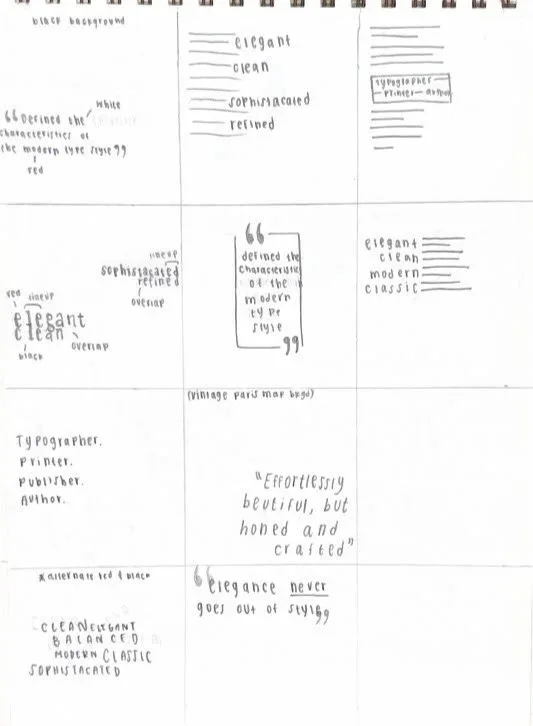 black background
white
“Defined the
characteristics of
the modern type style”
red
elegant
clean
sophistacated
refined
Typographer
Printer author
lineup
sophistacated
refined
overlap
red lineup
elegant
clean
overlap
black
“
defined the
characteristic
of the
modern
type
style
”
elegant
clean
modern
classic
Typographer.
Printer.
Publisher.
Author.
(vintage paris map bkgd)
"Effortlessly
beutiful, but
honed and
crafted"
*alternate red & black
CLEAN ELEGANT
BALANCED
MODERN CLASSIC
SOPHISTACATED
“elegance never
goes out of style”